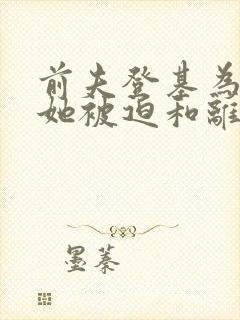 前夫登基為
她被迫和離
墨蓁